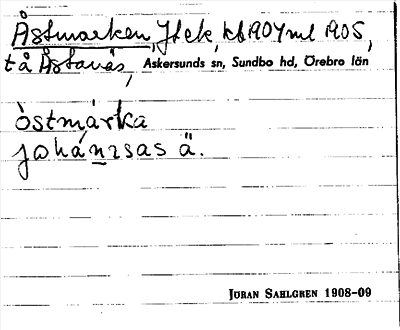 Åstmarken, Jfek, kb 1904 ml 1905,
tå Åstanäs, Askersunds sn, Sundbo hd, Örebro län
òstmárka
johánnsas ä.
JÖRAN SAHLGREN 1908-09